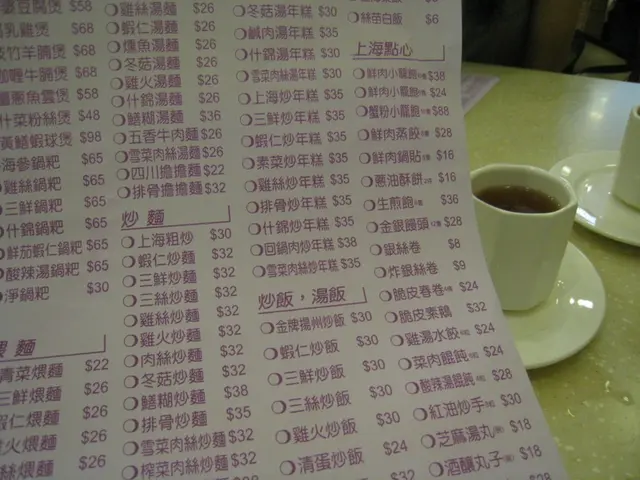 煲 $58
乳雞煲 $68
竹羊腩煲 $68
咖喱牛腩煲 $68
魚雲煲 $58
什菜粉絲煲 $48
黃鱔蝦球煲 $98
海參鍋粑 $65
雞絲鍋粑 $65
三鮮鍋粑 $65
什錦鍋粑 $65
鮮茄蝦仁鍋粑 $65
酸辣湯鍋粑 $65
淨鍋粑 $30
煨麵
青菜煨麵 $22
三鮮煨麵 $26
蝦仁煨麵 $26
火煨麵 $26
絲煨麵 $26
雞絲湯麵 $26
蝦仁湯麵 $26
燻魚湯麵 $26
冬菇湯麵 $26
雞火湯麵 $26
什錦湯麵 $26
鱔糊湯麵 $36
五香牛肉麵 $26
雪菜肉絲湯麵 $26
四川擔擔麵 $22
排骨擔擔麵 $32
炒麵
上海粗炒 $30
蝦仁炒麵 $32
三鮮炒麵 $32
三絲炒麵 $32
雞絲炒麵 $32
雞火炒麵 $32
肉絲炒麵 $32
冬菇炒麵 $32
鱔糊炒麵 $38
排骨炒麵 $35
雪菜肉絲炒麵 $32
榨菜肉絲炒麵 $32
冬菇湯年糕 $30
鹹肉湯年糕 $35
什錦湯年糕 $30
雪菜肉絲湯年糕 $30
上海炒年糕 $35
三鮮炒年糕 $35
蝦仁炒年糕 $35
素菜炒年糕 $35
雞絲炒年糕 $35
排骨炒年糕 $35
什錦炒年糕 $35
回鍋肉炒年糕 $38
雪菜肉絲炒年糕 $35
炒飯，湯飯
金牌揚州炒飯 $30
蝦仁炒飯 $30
三鮮炒飯 $30
三絲炒飯 $30
雞火炒飯 $30
清蛋炒飯 $24
$32
$28
絲苗白飯 $6
上海點心
鮮肉小籠飽 $38
鮮肉小籠飽 $24
蟹粉小籠飽 $88
鮮肉蒸餃 $28
鮮肉鍋貼 $16
蔥油酥餅 $16
生煎飽 $36
金銀饅頭 $28
銀絲卷 $8
炸銀絲卷 $9
脆皮春卷 $24
脆皮素鵝 $32
雞湯水餃 $24
菜肉餛飩 $24
酸辣湯餛飩 $28
紅油炒手 $30
芝麻湯丸 $18
酒釀丸子 $18